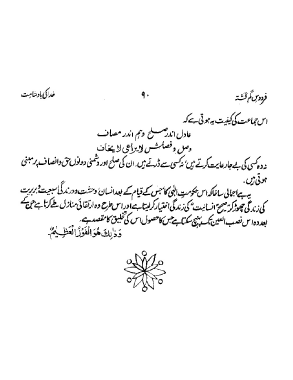 فردوسِ گم گشتہ ۹۰ خدا کی بادشاہت
اس جماعت کی کیفیت یہ ہوتی ہے کہ
عادل اندر صلح و ہم اندر مصاف
وصل و فصلش لا یراعی لا یخاف
نہ وہ کسی کی بے جا رعایت کرتے ہیں نہ کسی سے ڈرتے ہیں۔ ان کی صلح اور دشمنی دونوں حق و انصاف پر مبنی
ہوتی ہیں۔
یہ ہے اجمالی سا خاکہ اس حکومتِ الٰہی کا جس کے قیام کے بعد انسان وحشت و درندگی سبعیت و بربریت
کی زندگی چھوڑ کر صحیح "انسانیت" کی زندگی اختیار کر لیتا ہے اور اس طرح وہ ارتقائی منازل طے کرتا ہے جس کے
بعد وہ اس نصب العین تک پہنچ سکتا ہے جس کا حصول اس کی تخلیق کا مقصد ہے۔
وَذٰلِكَ هُوَ الْفَوْزُ الْعَظِيْمُ